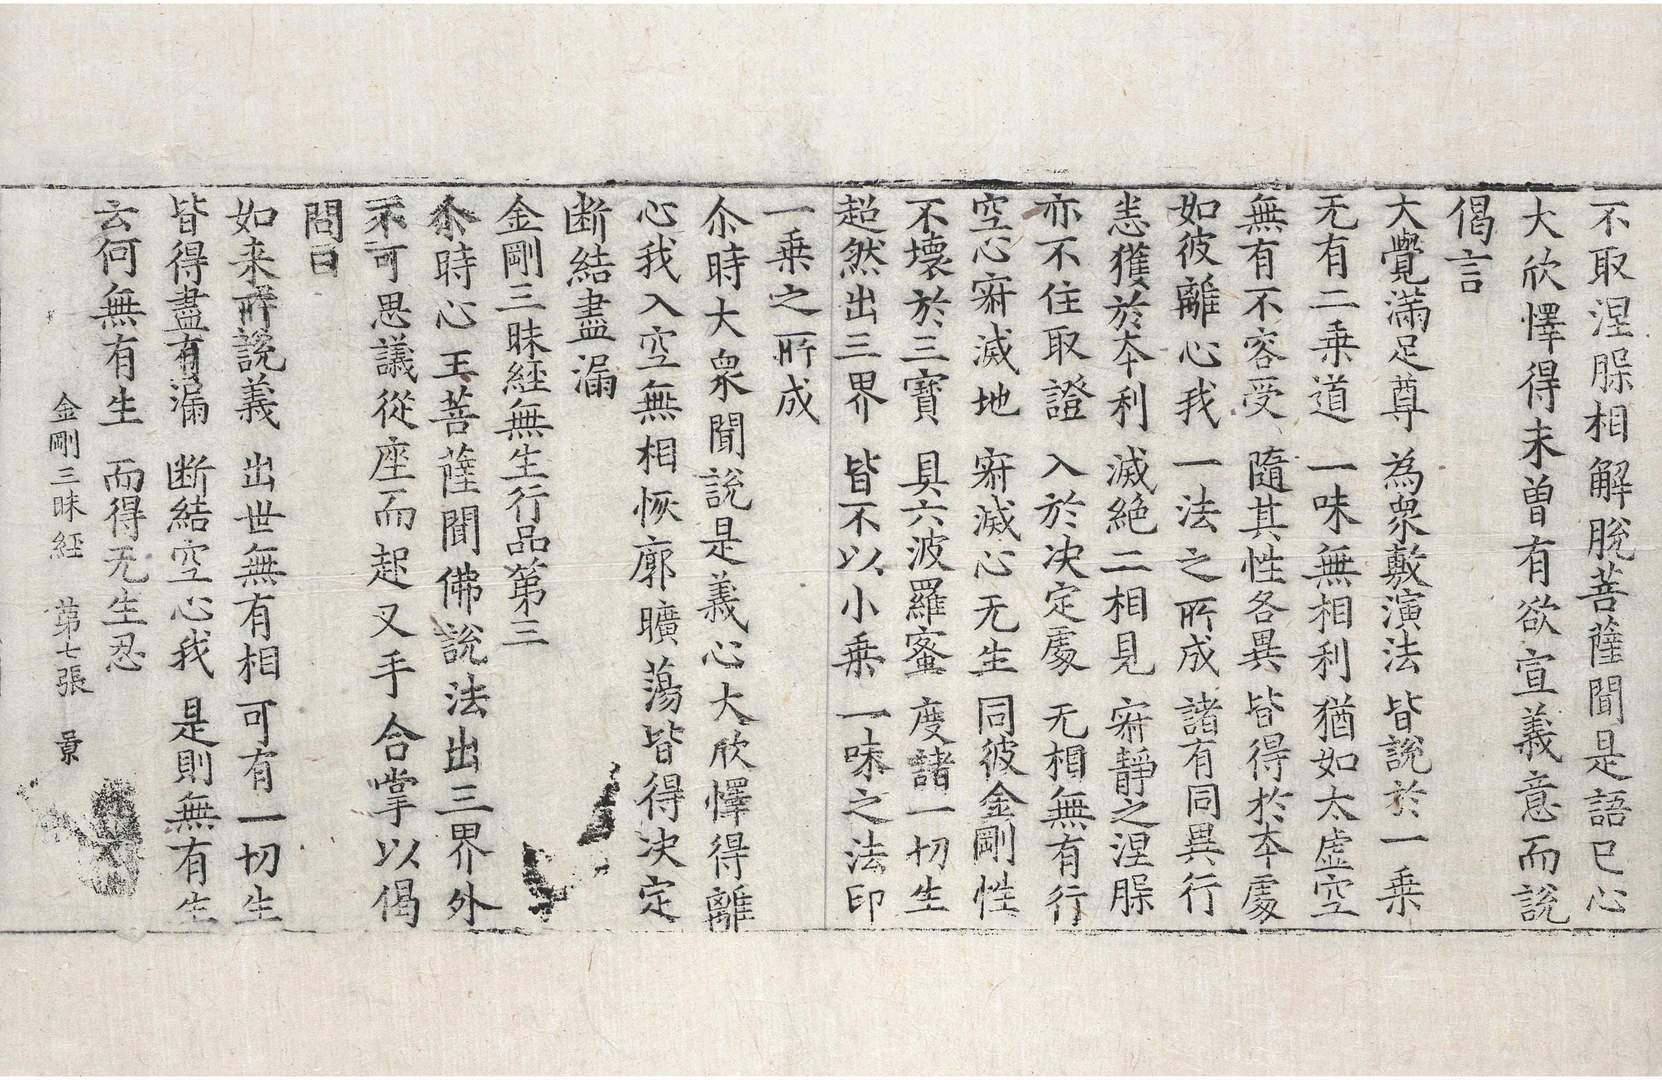 不取涅槃相解脫菩薩聞是語已心
大欣懌得未曾有欲宣義意而說
偈言
大覺滿足尊　為衆敷演法　皆說於一乗
无有二乗道　一味無相利　猶如太虛空
無有不容受　隨其性各異　皆得於夲處
如彼離心我　一法之所成　諸有同異行
悉獲於夲利　滅絶二相見　寂靜之涅槃
亦不住取證　入於决定處　无相無有行
空心寂滅地　寂滅心无生　同彼金剛性
不壞於三寶　具六波羅蜜　度諸一切生
超然出三界　皆不以小乗　一味之法印
一乗之所成
尒時大衆聞說是義心大欣懌得離
心我入空無相恢廓曠蕩皆得决定
断結盡漏
金剛三昧經無生行品第三
尒時心王菩薩聞佛說法出三界外
不可思議從座而起叉手合掌以偈
問曰
如来所說義　出世無有相　可有一切生
皆得盡有漏　断結空心我　是則無有生
云何無有生　而得无生忍
金剛三昧經　第七張　景